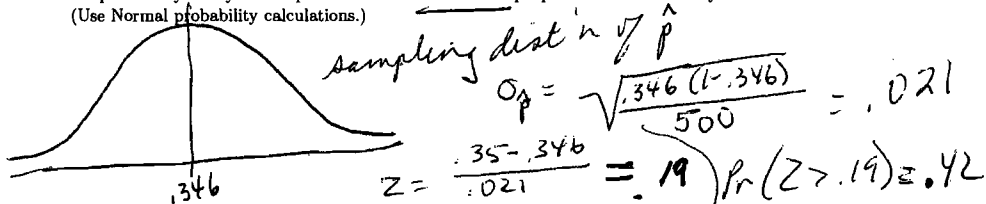 (Use Normal probability calculations.)
sampling dist'n of p̂
σp̂ = √(.346(1-.346)/500) = .021
.346
Z = (.35-.346)/.021 = .19 Pr(Z>.19)=.42